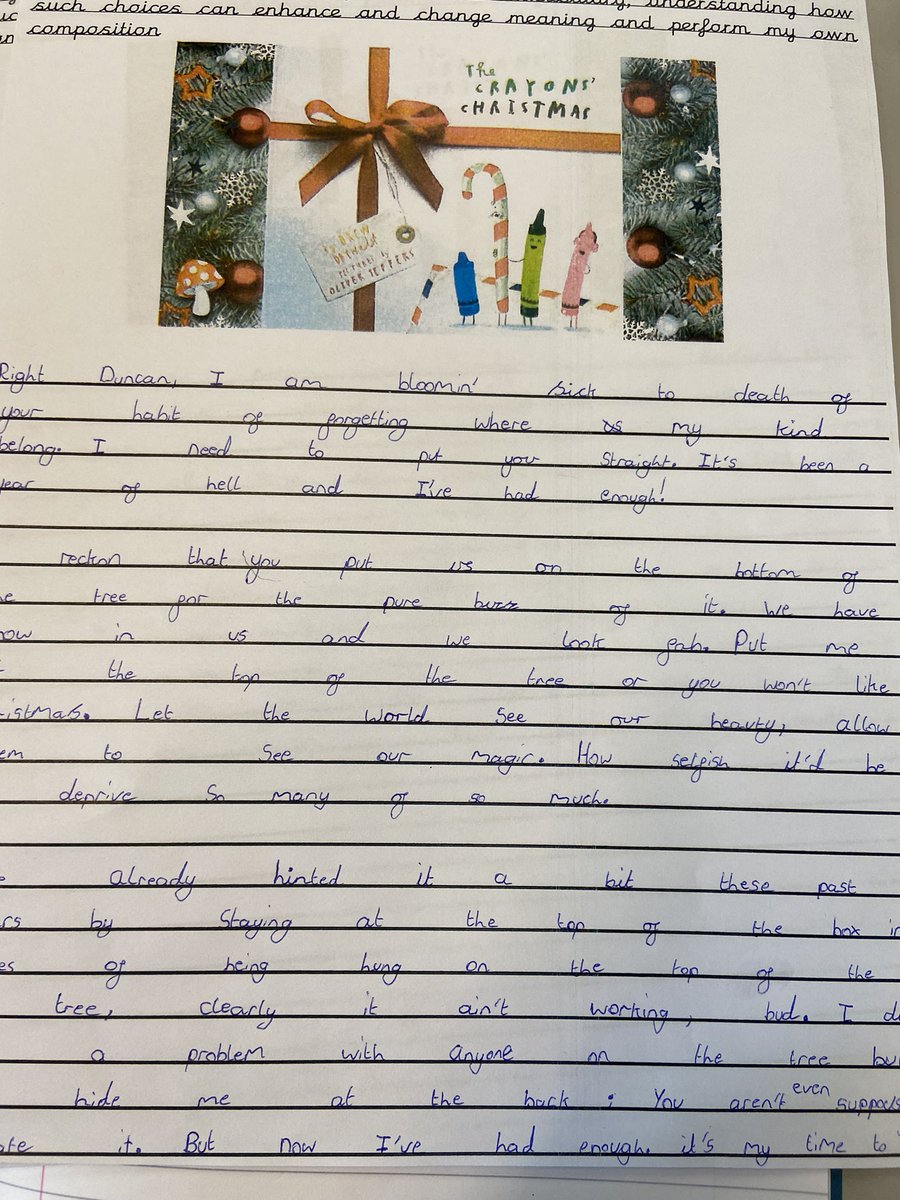 understanding how
such choices can enhance and change meaning and perform my own
composition
The
CRAYONS'
CHRISTMAS
DREW
DAYWALT
PICTURES by
OLIVER JEFFERS
Right Duncan, I am bloomin' sick to death of
your habit of forgetting where my kind
belong. I need to put you straight. It's been a
year of hell and I've had enough!
reckon that you put us on the bottom of
tree for the pure buzz of it. We have
in us and we look fab. Put me
the top of the tree or you won't like
istmas. Let the world see our beauty, allow
em to see our magic. How selfish it'd be
deprive so many of so much.
already hinted it a bit these past
rs by staying at the top of the box in
es of being hung on the top of the
tree, clearly it ain't working, bud. I d
a problem with anyone on the tree bu
hide me at the back; You aren't even suppos
it. But now I've had enough. it's my time to